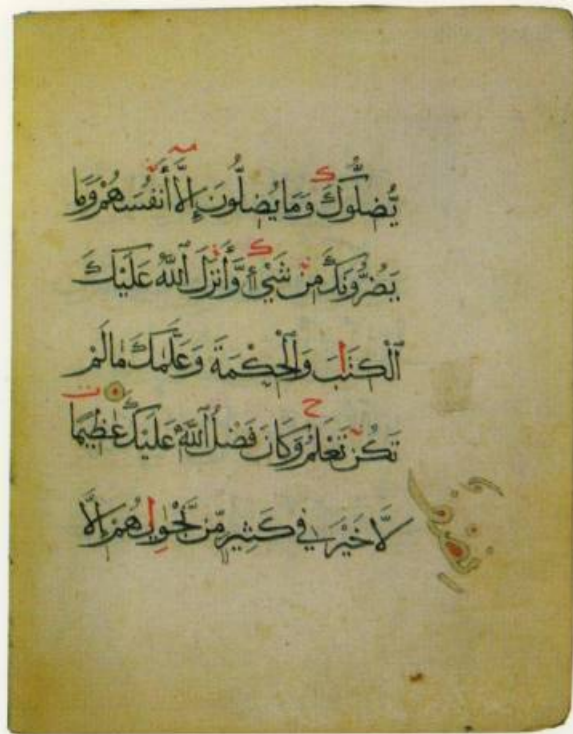 يُّضِلُّوكَ وَمَا يُضِلُّونَ إِلَّا أَنفُسَهُمْ وَمَا
يَضُرُّونَكَ مِن شَيْءٍ وَأَنزَلَ ٱللَّهُ عَلَيْكَ
ٱلْكِتَابَ وَٱلْحِكْمَةَ وَعَلَّمَكَ مَا لَمْ
تَكُن تَعْلَمُ وَكَانَ فَضْلُ ٱللَّهِ عَلَيْكَ عَظِيمًا
لَّا خَيْرَ فِي كَثِيرٍ مِّن نَّجْوَاهُمْ إِلَّا